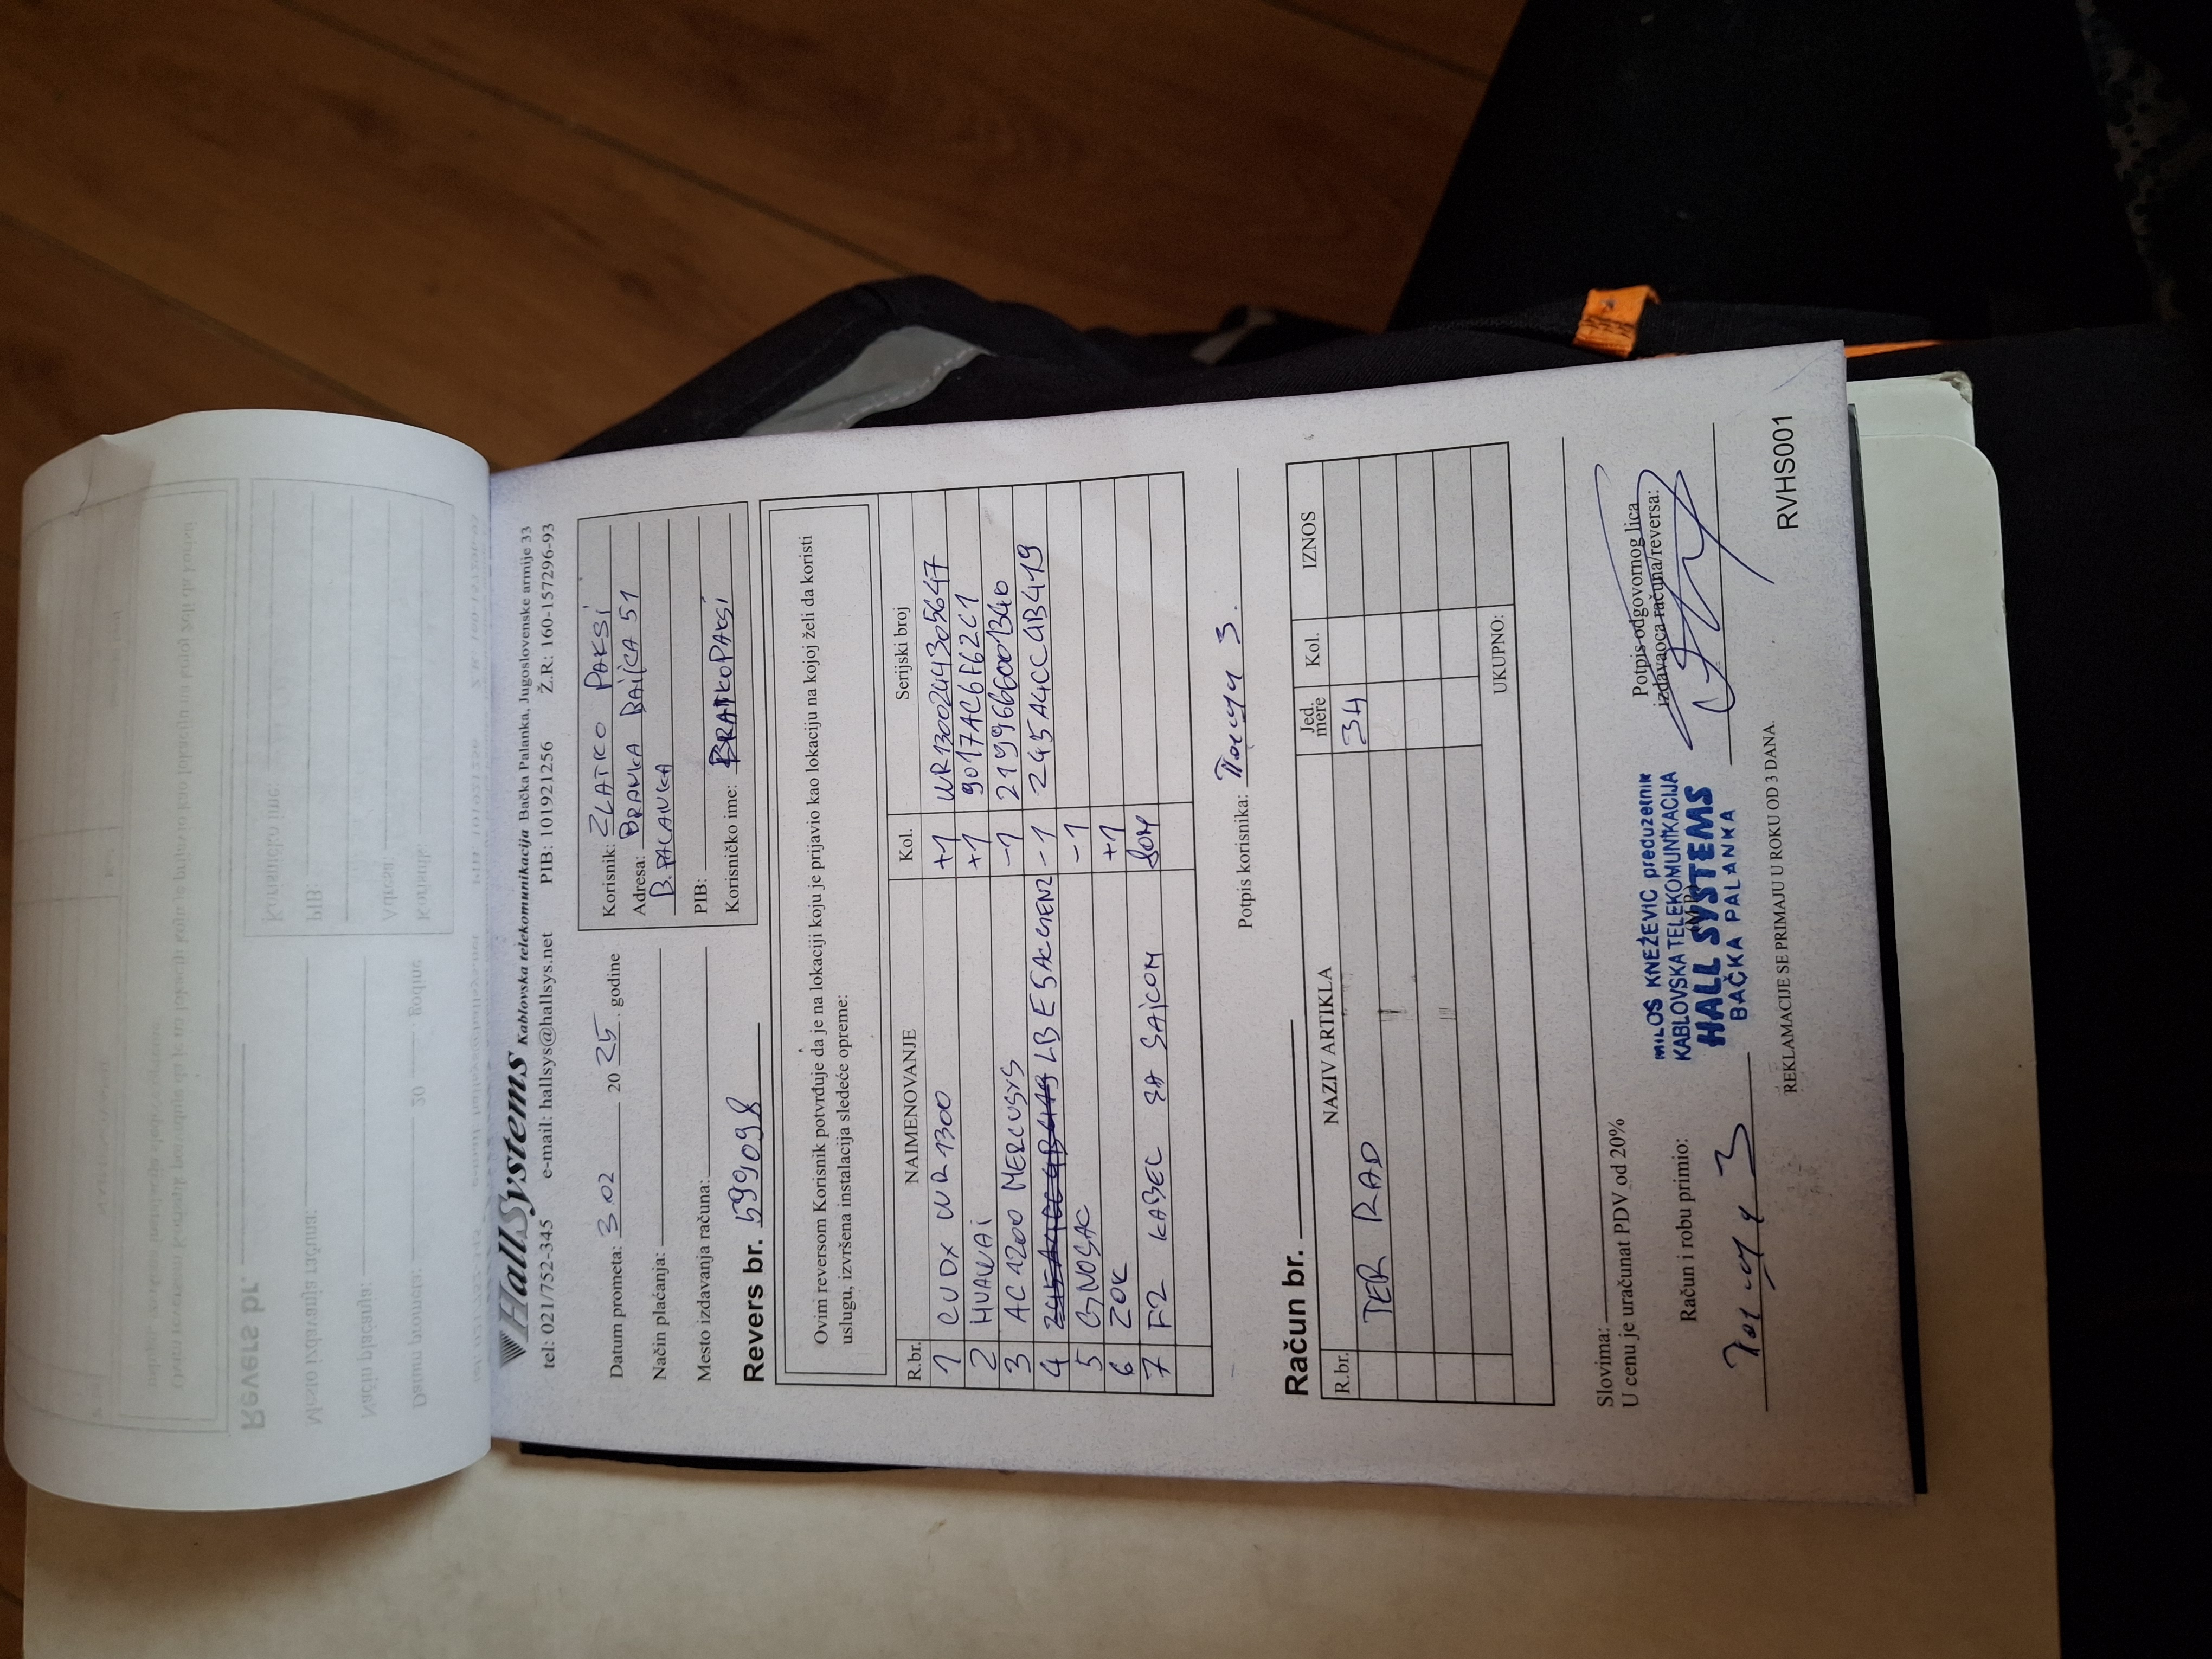 HallSystems Kablovska telekomunikacija Bačka Palanka, Jugoslovenske armije 33
tel: 021/752-345 e-mail: hallsys@hallsys.net PIB: 101921256 Ž.R: 160-157296-93
Datum prometa: 3.02 20 25. godine
Način plaćanja:
Mesto izdavanja računa:
Korisnik: ZLATKO PAKSI
Adresa: BRANKA BAIĆA 51
B. PALANKA
PIB:
Korisničko ime: BRATKOPAKSI
Revers br. 599098
Ovim reversom Korisnik potvrđuje da je na lokaciji koju je prijavio kao lokaciju na kojoj želi da koristi
uslugu, izvršena instalacija sledeće opreme:
R.br. NAIMENOVANJE Kol. Serijski broj
1 CUDY WR 1300 +1 WR1300244305647
2 HUAWAI +1 9017AC6F62C1
3 AC 1200 MERCUSYS -1 2199666001340
4 LBE 5AC GEN2 -1 245A4CCAB419
5 G, NOSAC -1
6 ZOK +1
7 F2 KABEL SA SAJLOM
Potpis korisnika:
Račun br.
R.br. NAZIV ARTIKLA Jed. mere Kol. IZNOS
TER RAD 3H
UKUPNO:
Slovima:
U cenu je uračunat PDV od 20%
Račun i robu primio:
MILOŠ KNEŽEVIĆ preduzetnik
KABLOVSKA TELEKOMUNIKACIJA
HALL SYSTEMS
BAČKA PALANKA
Potpis odgovornog lica
izdavaoca računa/reversa:
REKLAMACIJE SE PRIMAJU U ROKU OD 3 DANA.
RVHS001